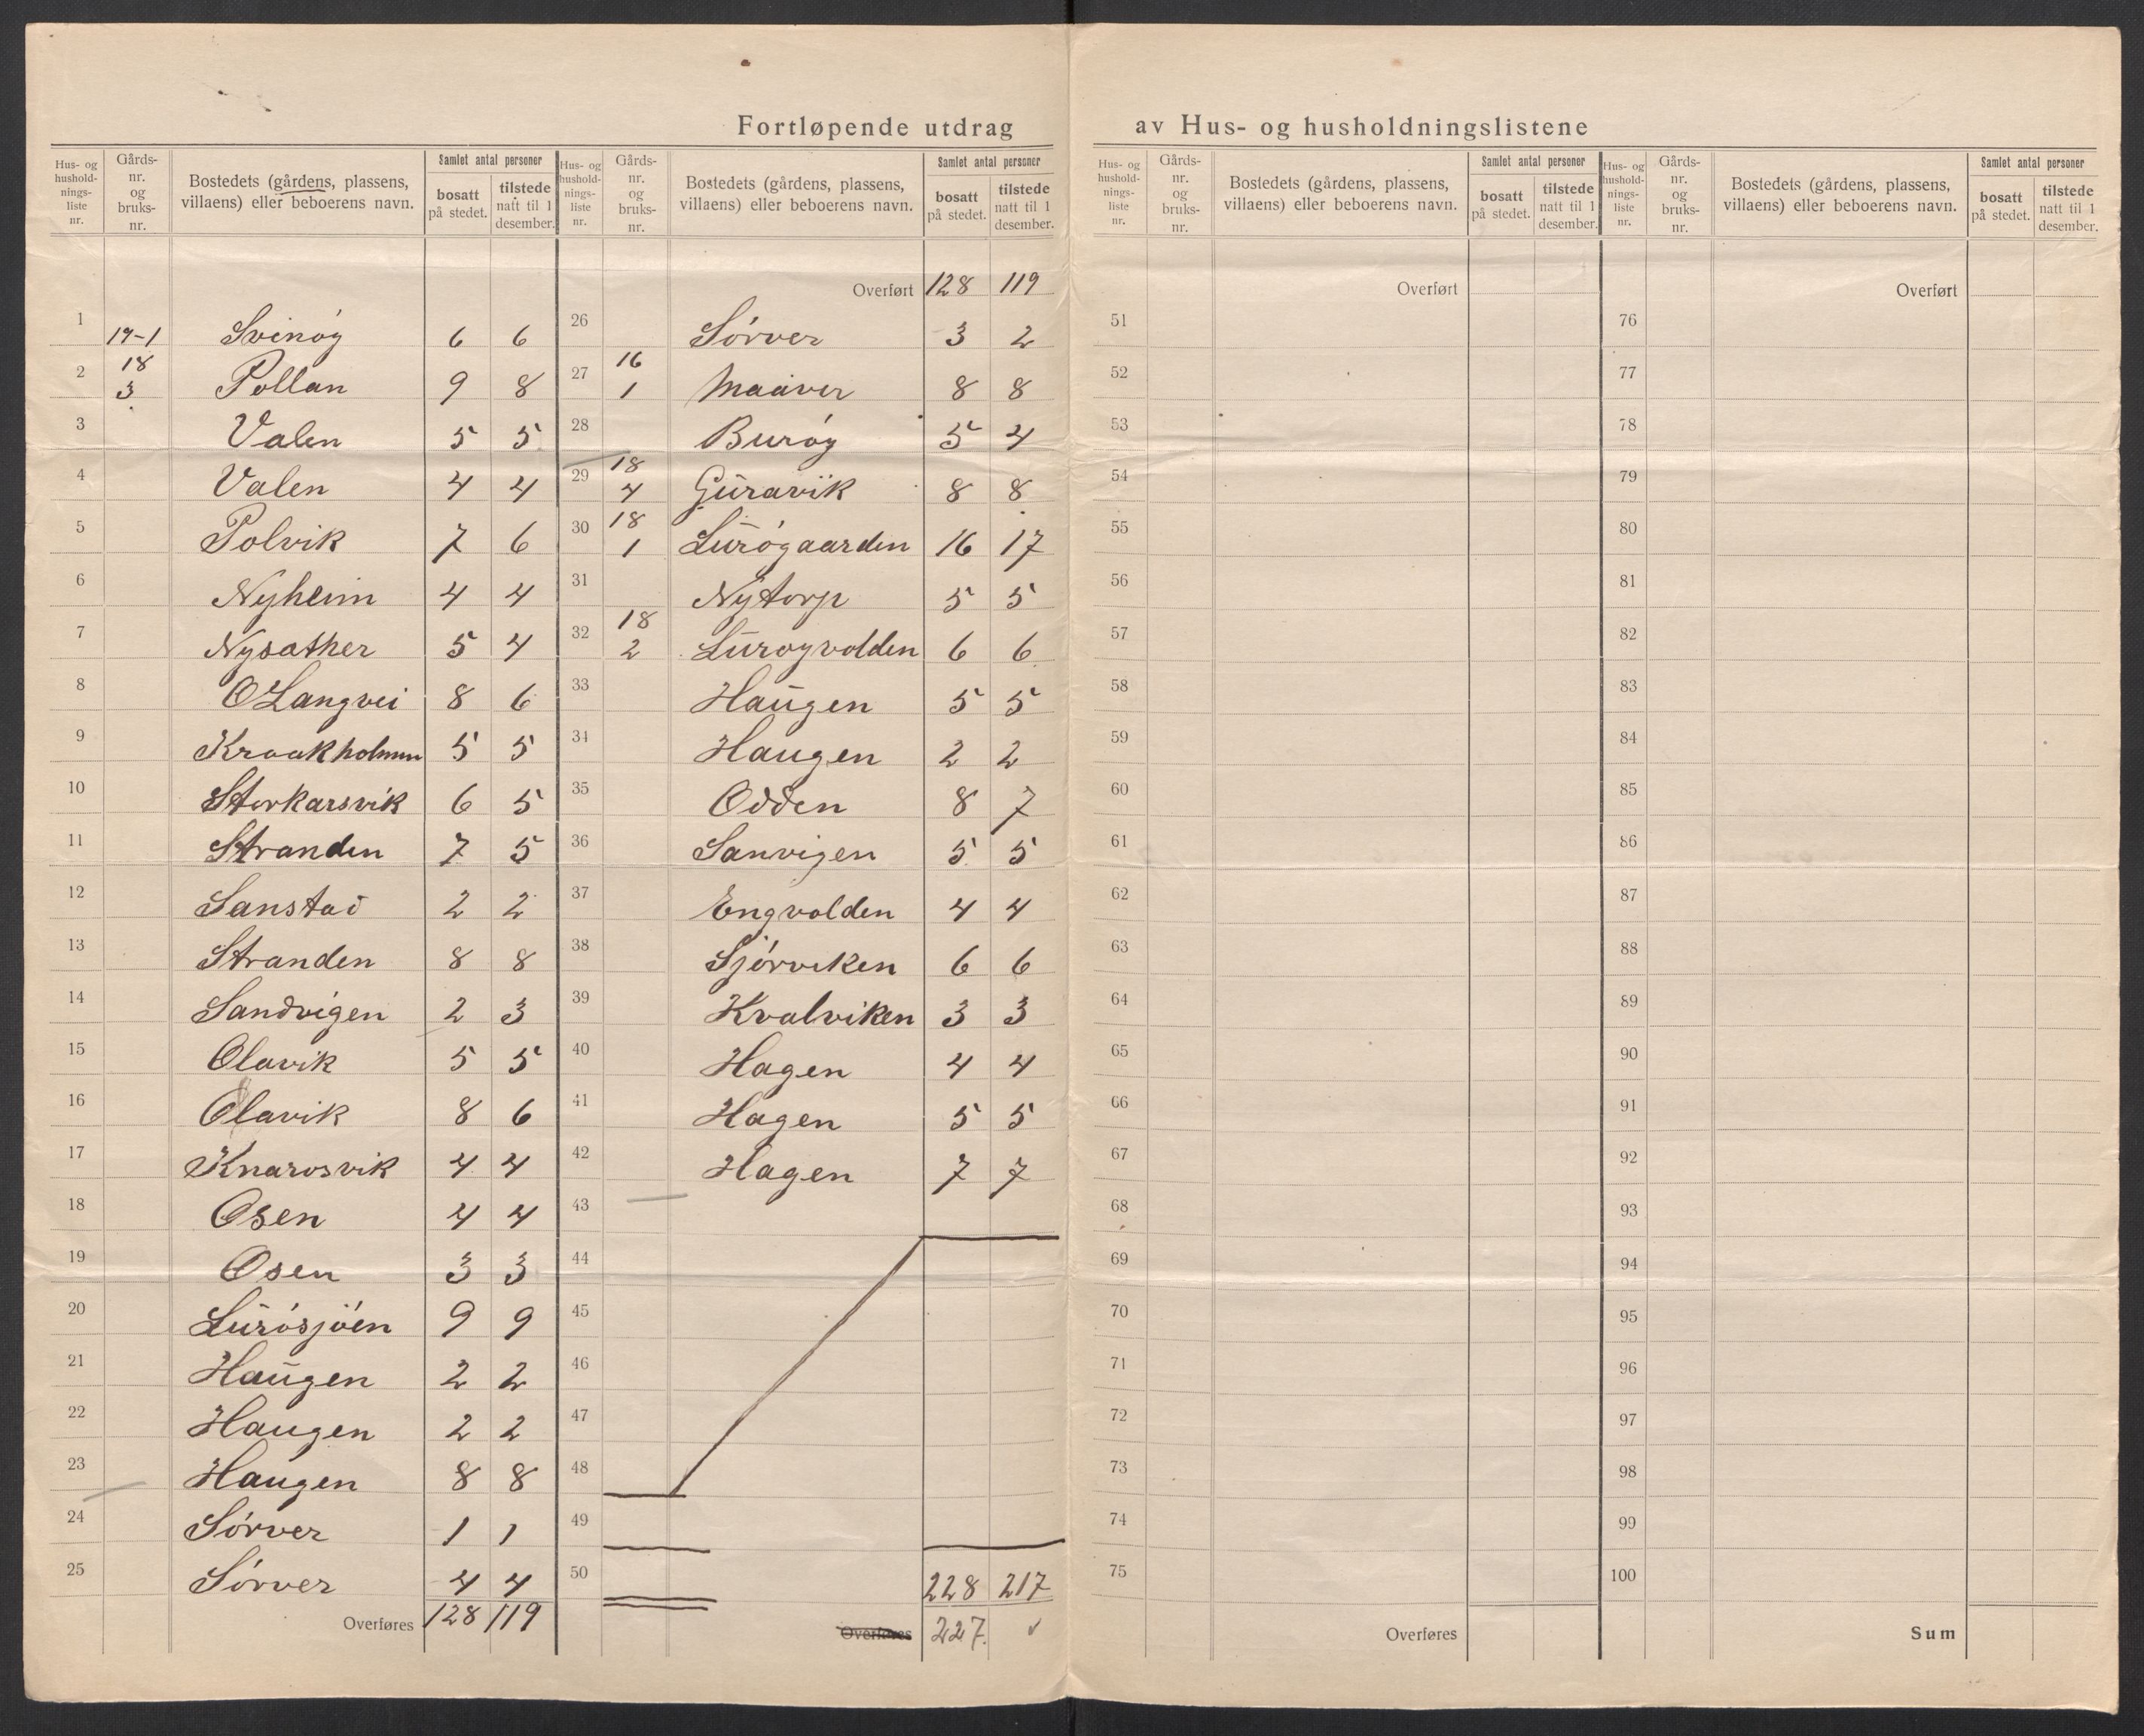 Fortløpende utdrag av Hus- og husholdningslistene
Hus- og hushold- nings- liste nr. | Gårds- nr. og bruks- nr. | Bostedets (gårdens, plassens, villaens) eller beboerens navn. | Samlet antal personer | bosatt på stedet. | tilstede natt til 1 desember.
1 19-1 Svinøy 6 6
2 18 3 Pollan 9 8
3 Valen 5 5
4 Valen 4 4
5 Polvik 7 6
6 Nyheim 4 4
7 Nysæther 5 4
8 OLangvei 8 6
9 Kraakholmen 5 5
10 Storkarsvik 6 5
11 Stranden 7 5
12 Sanstad 2 2
13 Stranden 8 8
14 Sandvigen 2 3
15 Olavik 5 5
16 Olavik 8 6
17 Knarosvik 4 4
18 Osen 4 4
19 Osen 3 3
20 Lurøsjøen 9 9
21 Haugen 2 2
22 Haugen 2 2
23 Haugen 8 8
24 Sørver 1 1
25 Sørver 4 4
Overføres 128 119
Hus- og hushold- nings- liste nr. | Gårds- nr. og bruks- nr. | Bostedets (gårdens, plassens, villaens) eller beboerens navn. | Samlet antal personer | bosatt på stedet. | tilstede natt til 1 desember.
Overført 128 119
26 Sørver 3 2
27 16 1 Maaver 8 8
28 Burøy 5 4
29 18 4 Guravik 8 8
30 18 1 Lurøgaarden 16 17
31 Nytorp 5 5
32 18 2 Lurøyvolden 6 6
33 Haugen 5 5
34 Haugen 2 2
35 Odden 8 7
36 Sanvigen 5 5
37 Engvolden 4 4
38 Sjørviken 6 6
39 Kvalviken 3 3
40 Hagen 4 4
41 Hagen 5 5
42 Hagen 7 7
43
44
45
46
47
48
49
50 228 217
Overføres 227. ✓
Hus- og hushold- nings- liste nr. | Gårds- nr. og bruks- nr. | Bostedets (gårdens, plassens, villaens) eller beboerens navn. | Samlet antal personer | bosatt på stedet. | tilstede natt til 1 desember.
Overført
51
52
53
54
55
56
57
58
59
60
61
62
63
64
65
66
67
68
69
70
71
72
73
74
75
Overføres
Hus- og hushold- nings- liste nr. | Gårds- nr. og bruks- nr. | Bostedets (gårdens, plassens, villaens) eller beboerens navn. | Samlet antal personer | bosatt på stedet. | tilstede natt til 1 desember.
Overført
76
77
78
79
80
81
82
83
84
85
86
87
88
89
90
91
92
93
94
95
96
97
98
99
100
Sum